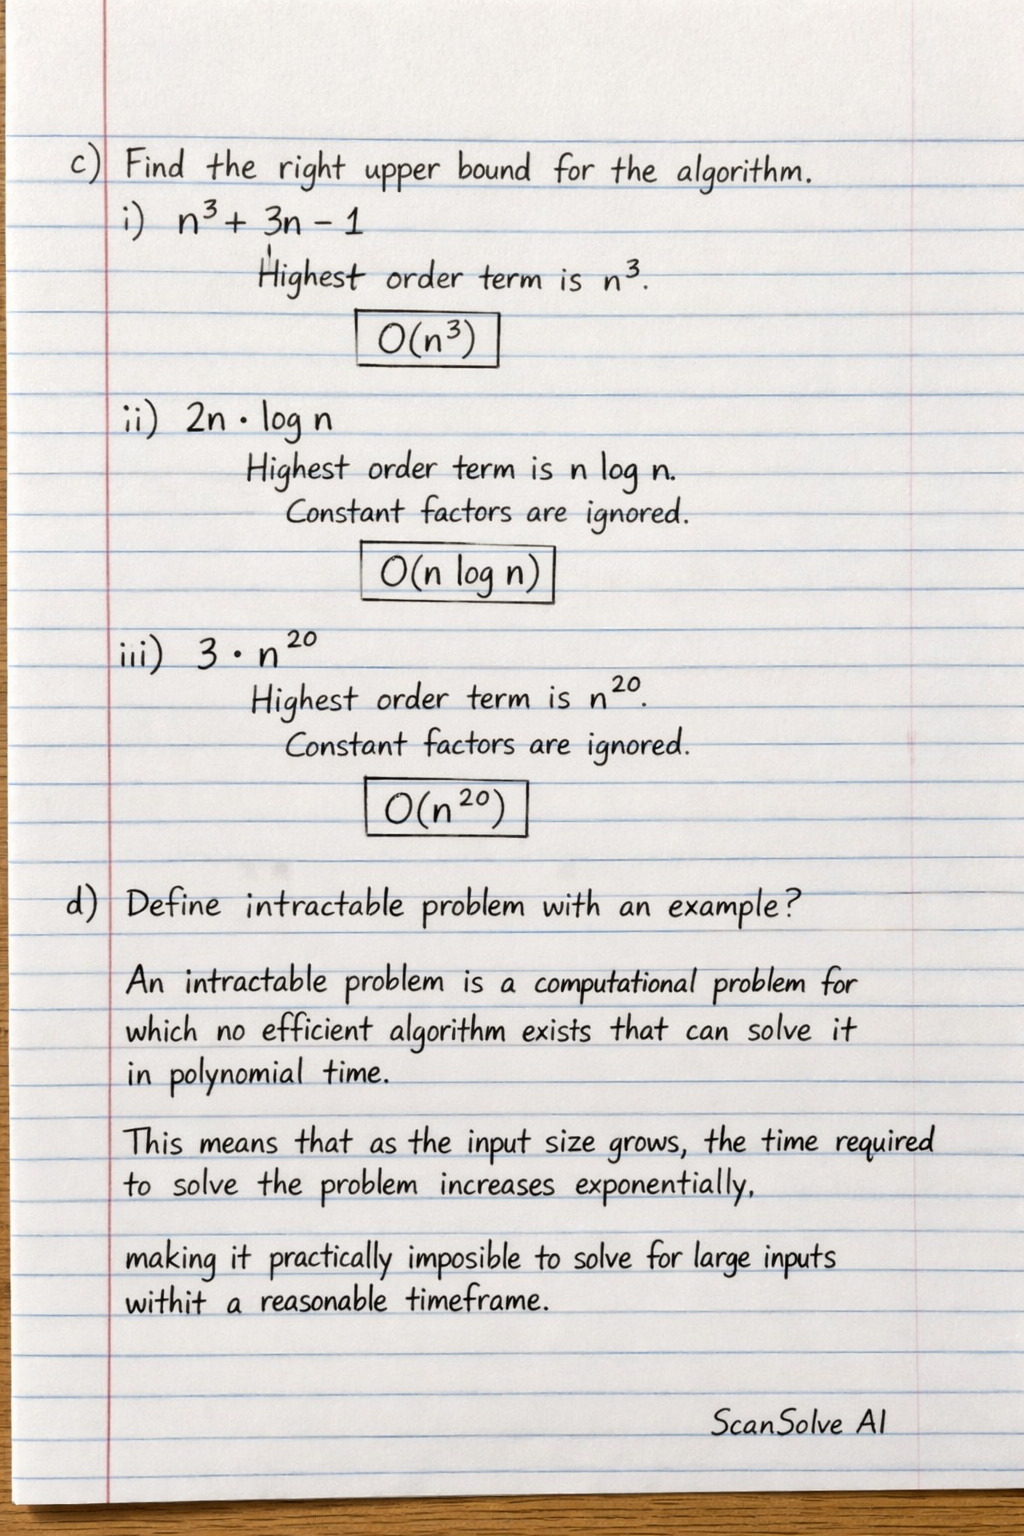 c) Find the right upper bound for the algorithm.
i) n³ + 3n − 1
Highest order term is n³.
O(n³)
ii) 2n · log n
Highest order term is n log n.
Constant factors are ignored.
O(n log n)
iii) 3 · n²⁰
Highest order term is n²⁰.
Constant factors are ignored.
O(n²⁰)
d) Define intractable problem with an example?
An intractable problem is a computational problem for
which no efficient algorithm exists that can solve it
in polynomial time.
This means that as the input size grows, the time required
to solve the problem increases exponentially,
making it practically imposible to solve for large inputs
withit a reasonable timeframe.
ScanSolve AI